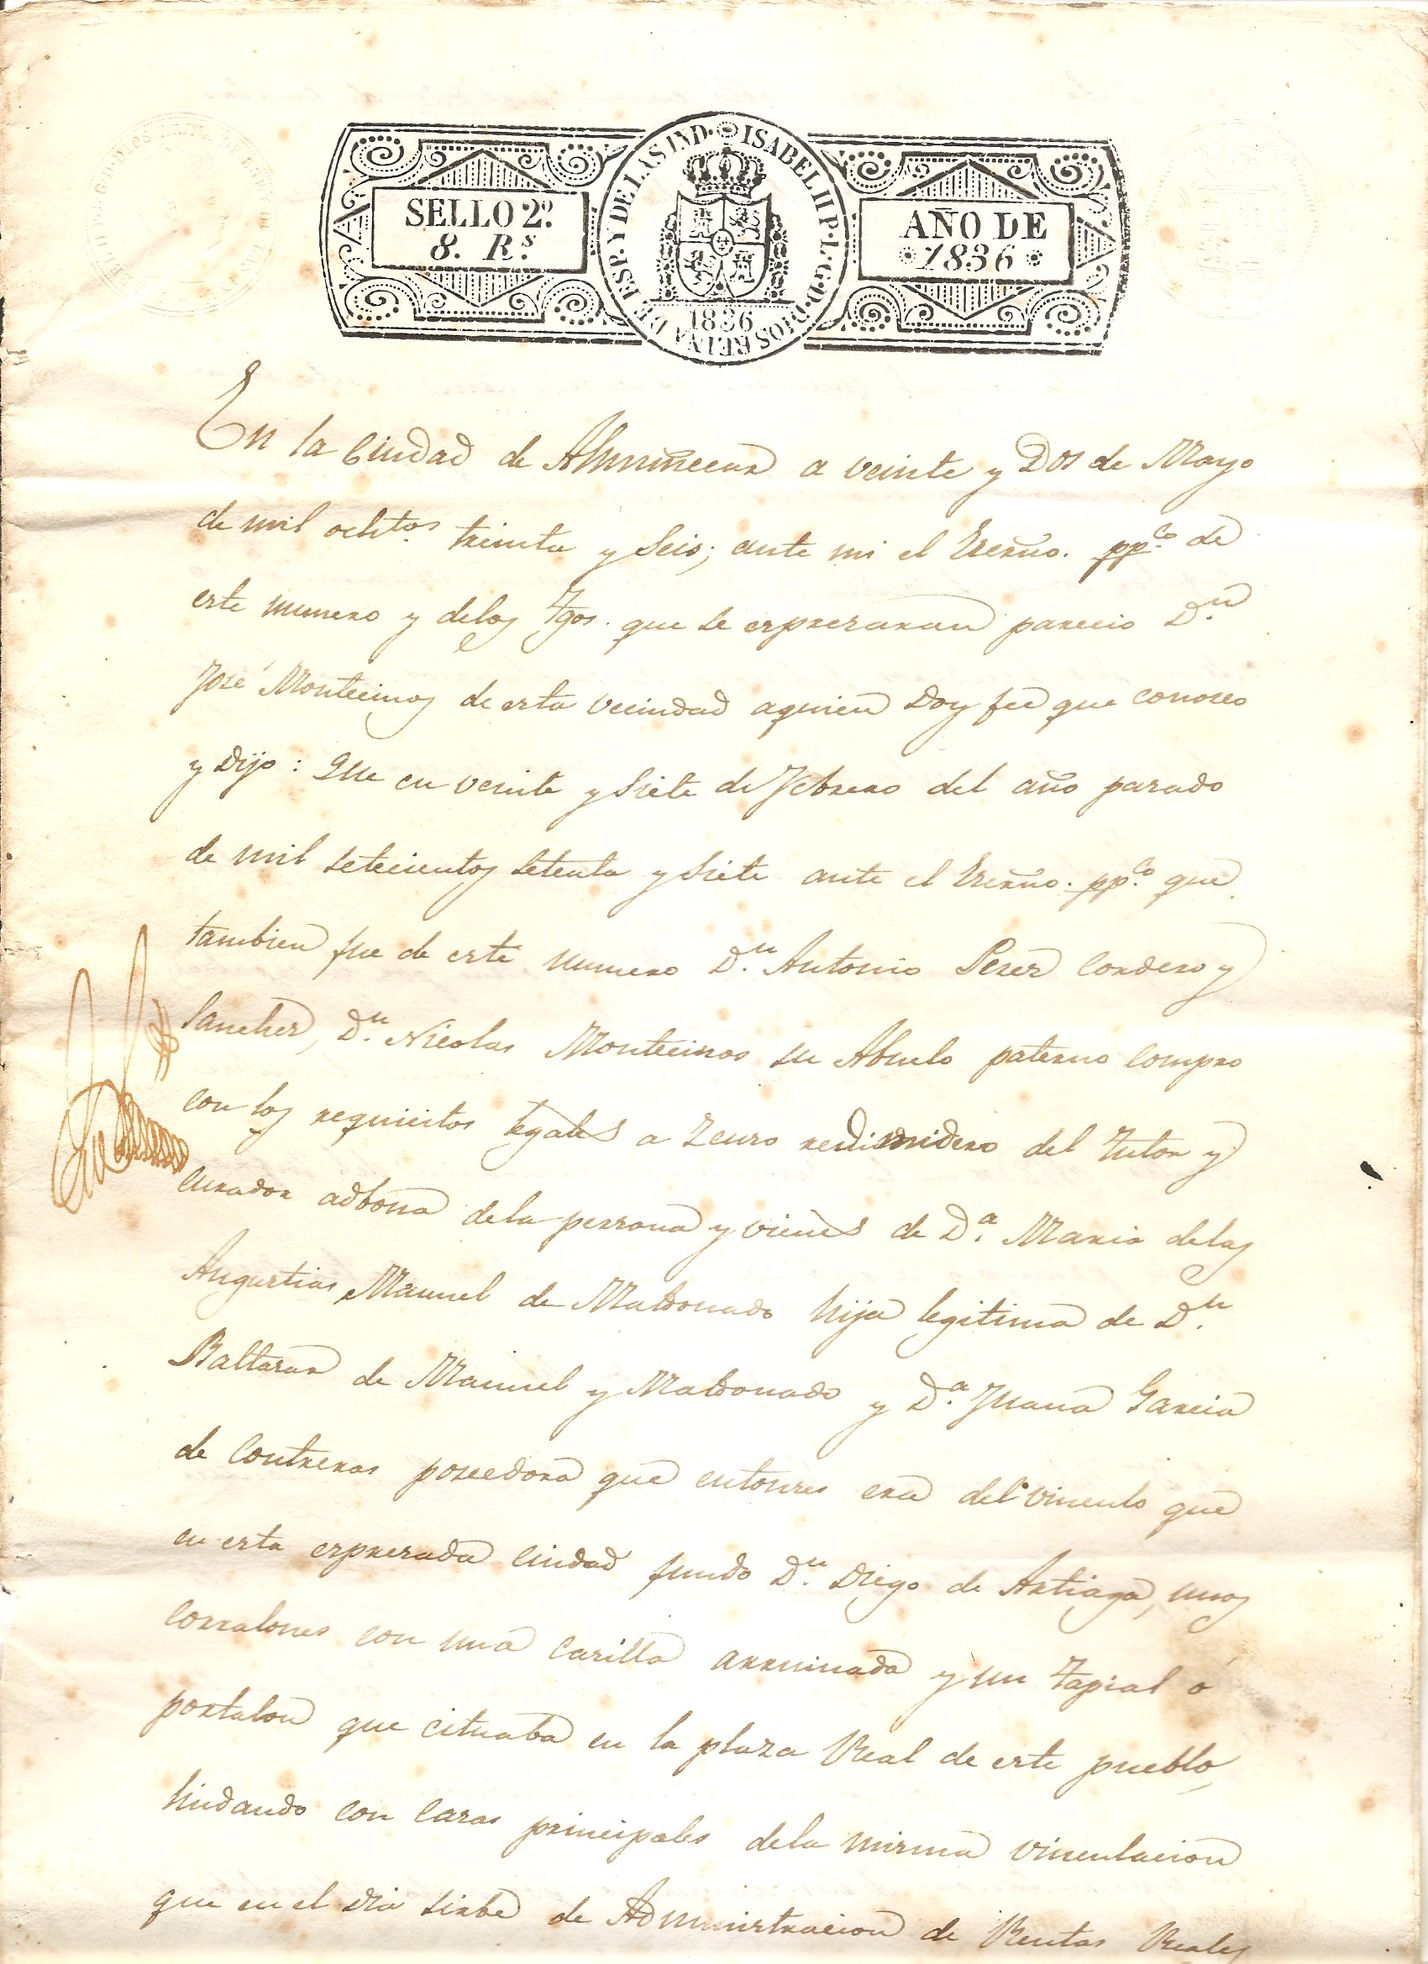 SELLO 2º.
8. Rs.
ISABEL II P. L. G. D. DIOS REINA DE ESP. Y DE LAS IND.
1836
AÑO DE
1836
En la Ciudad de Almuñecar a veinte y Dos de Mayo
de mil ochtos. treinta y seis; ante mi el Escrno. ppco. de
este numero y delos Tgos. que se espresaran parecio Dn.
José Montecinos de esta vecindad aquien Doy fee que conosco
y Dijo: Que en veinte y siete de Febrero del año pasado
de mil setecientos setenta y siete ante el Escrno. ppco. que
tambien fue de este numero Dn. Antonio Peres Cordero y
Sanches, Dn. Nicolas Montecinos su Abuelo paterno compro
con los requicitos legales a Zenso redimidero del Tutor y
Curador adbona dela persona y vienes de Da. Maria delas
Angustias Manuel de Maldonado hija legitima de Dn.
Baltasar de Manuel y Maldonado y Da. Juana Garcia
de Contreras poseedora que entonses era del vinculo que
en esta espresada Ciudad fundo Dn. Diego de Artiaga, unos
corralones con una casilla arruinada y un tapial ó
portalon que cituaba en la plaza Real de este pueblo,
lindando con casas principales dela misma vinculacion
que en el dia sirbe de Administracion de Rentas Reales